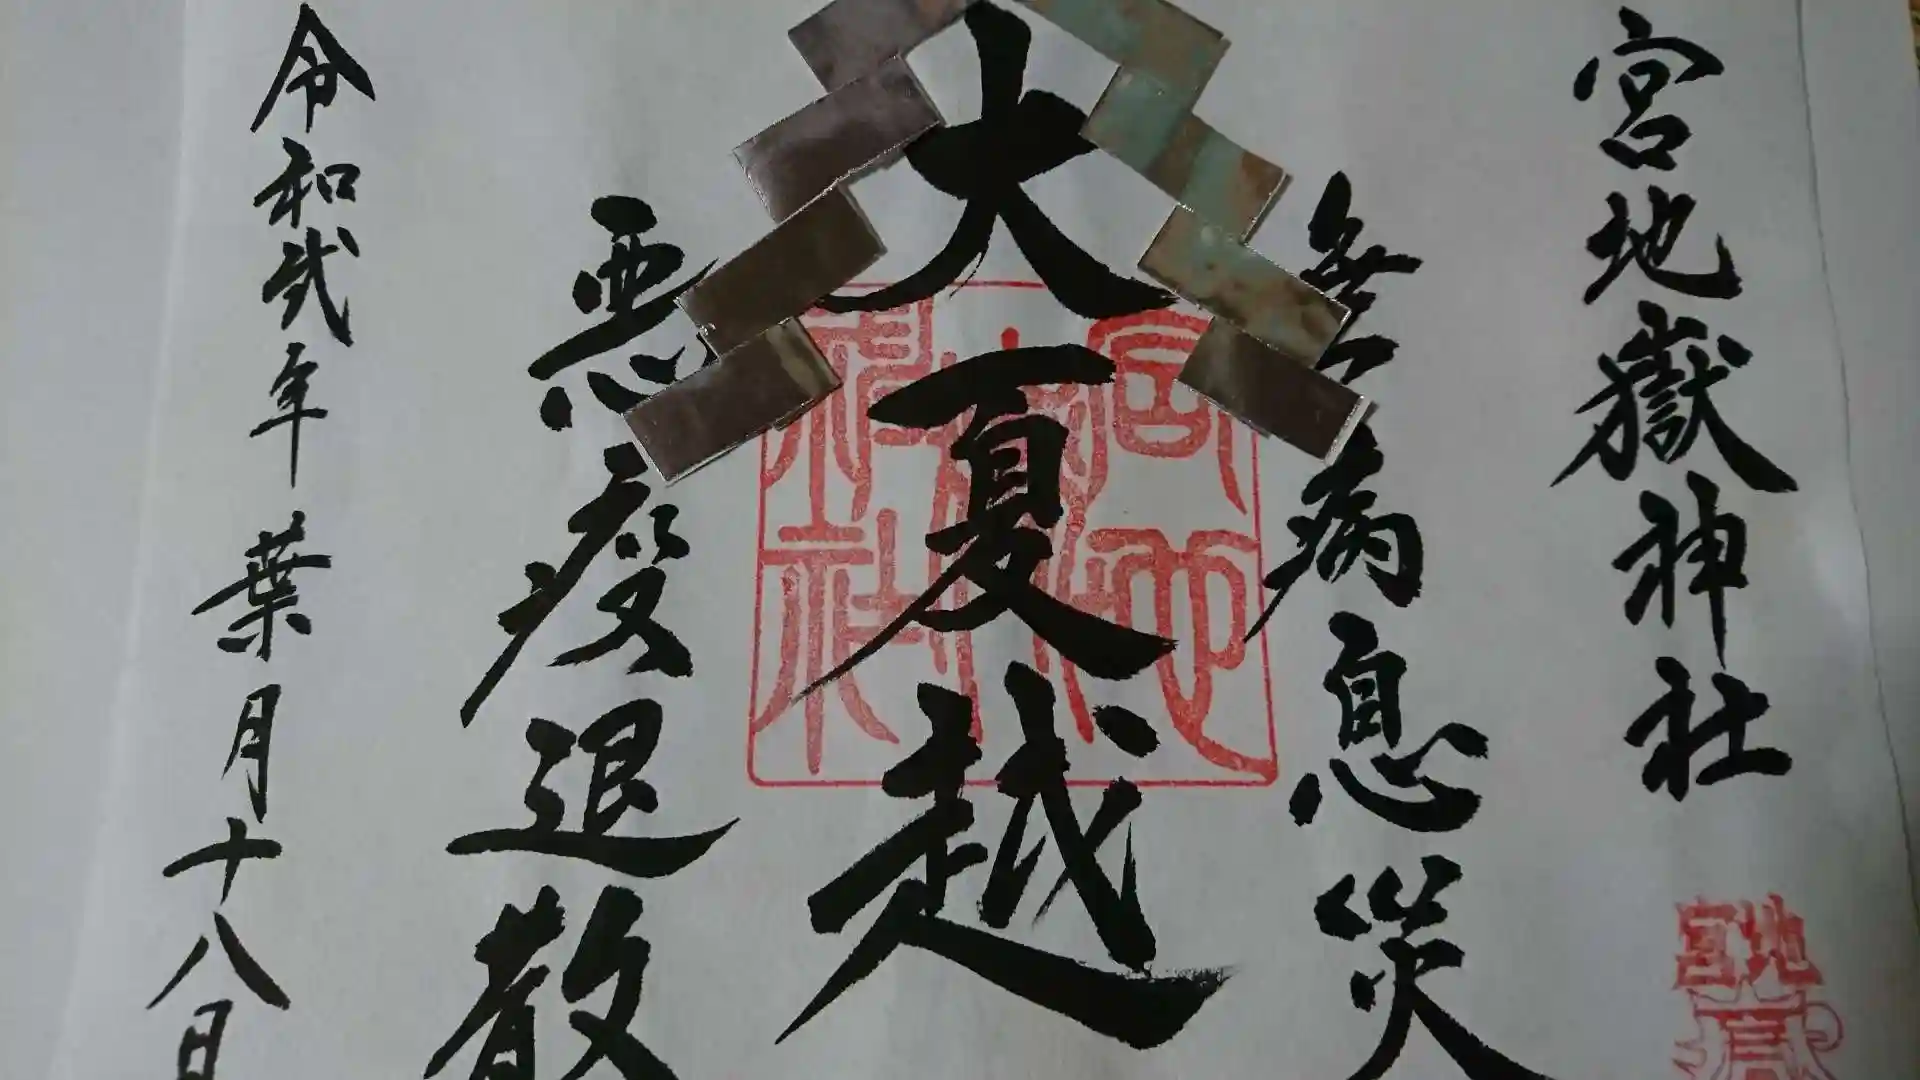 宮地嶽神社
無病息災
大夏越
悪疫退散
令和弐年 葉月十八日
宮地嶽神社
宮地嶽